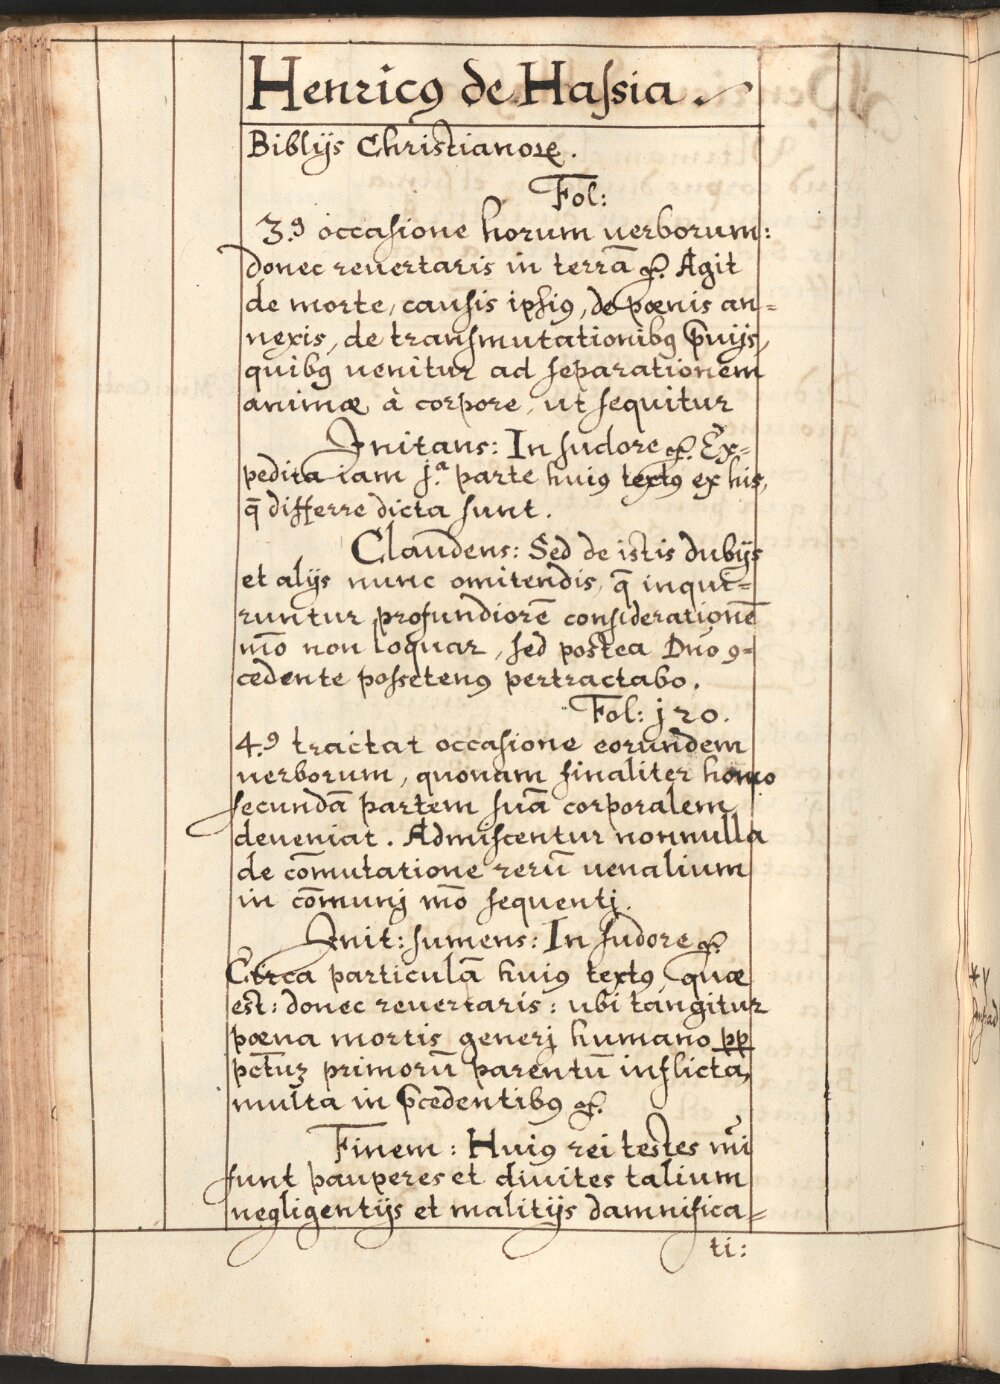 Henricꝰ de Haſsia.
Biblijs Christianoꝝ.
Fol:
3.ꝰ occaſione horum uerborum:
donec reuertaris in terrā &. Agit
de morte, cauſis ipſiꝰ, de pœnis an-
nexis, de tranſmutationibꝰ p̄uijs,
quibꝰ uenitur ad ſeparationem
animæ à corpore, ut ſequitur
Initans: In ſudore &. Ex-
pedita iam j.ª parte huiꝰ textꝰ ex his,
q̄ differre dicta ſunt.
Claudens: Sed de istis dubijs
et alijs nunc omitendis, q̄ inqui-
runtur profundiorē conſiderationē
mo̅ non loquar, ſed postea Dn̄o ꝯ-
cedente poſsetenꝰ pertractabo.
Fol: j20.
4.ꝰ tractat occaſione eorundem
uerborum, quonam finaliter homo
ſecundā partem ſuā corporalem
deueniat. Admiſcentur nonnulla
de com̄utatione rerū uenalium
in com̄unj mo̅ ſequentj.
Init: ſumens: In ſudore &.
Circa particulā huiꝰ textꝰ, quæ
est: donec reuertaris: ubi tangitur
pœna mortis generj humano ꝓꝑ
pct̄uꝫ primorū parentū inflicta,
multa in p̄cedentibꝰ &.
Finem: Huiꝰ rei testes mi̅
ſunt pauperes et diuites talium
negligentijs et malitijs damnifica-
ti: